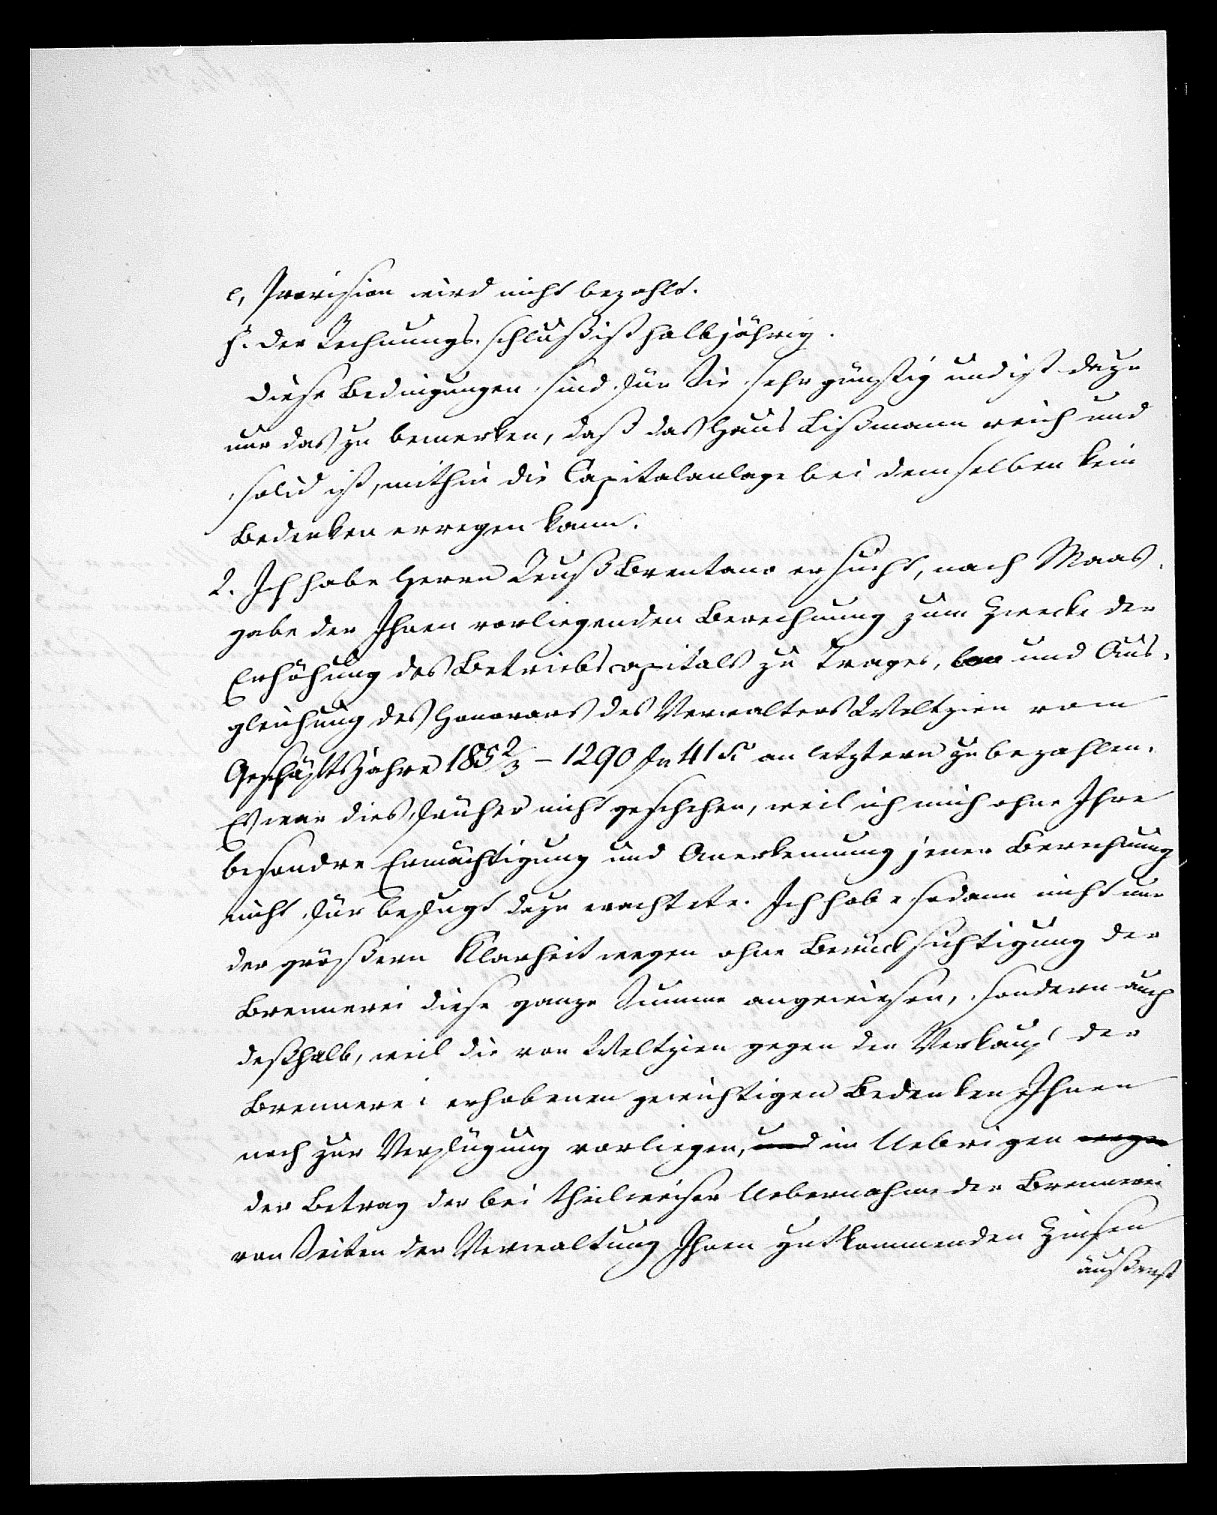 e, Provision wird nicht bezahlt.
f. der Rechnungsschluß ist halbjährig.
Diese Bedingungen sind für Sie sehr günstig und ist dazu
nur das zu bemerken, daß das Haus Lißmann reich und
solid ist, mithin die Capitalanlage bei demselben kein
Bedenken erregen kann.
2. Ich habe Herrn Reuß Brentano ersucht, nach Maas-
gabe der Ihnen vorliegenden Berechnung zum Zwecke der
Erhöhung des Betriebscapitals zu Trages, und Aus-
gleichung des Honorars des Verwalters Weltzien vom
Geschäftsjahre 1852/3 – 1290 fr 41 x an letztern zu bezahlen.
Es war dies früher nicht geschehen, weil ich mich ohne Ihre
besondre Ermächtigung und Anerkennung jener Berechnung
nicht für befugt dazu erachtete. Ich habe sodann nicht nur
der größern Klarheit wegen ohne Berücksichtigung der
Brennerei diese ganze Summe angewiesen, sondern auch
deßhalb, weil die von Weltzien gegen den Verkauf der
Brennerei erhobenen gewichtigen Bedenken Ihnen
noch zur Verfügung vorliegen, und im Uebrigen wegen
der Betrag der bei theilweiser Uebernahme der Brennerei
von Seiten der Verwaltung Ihnen zutkommenden Zinsen
äußerst